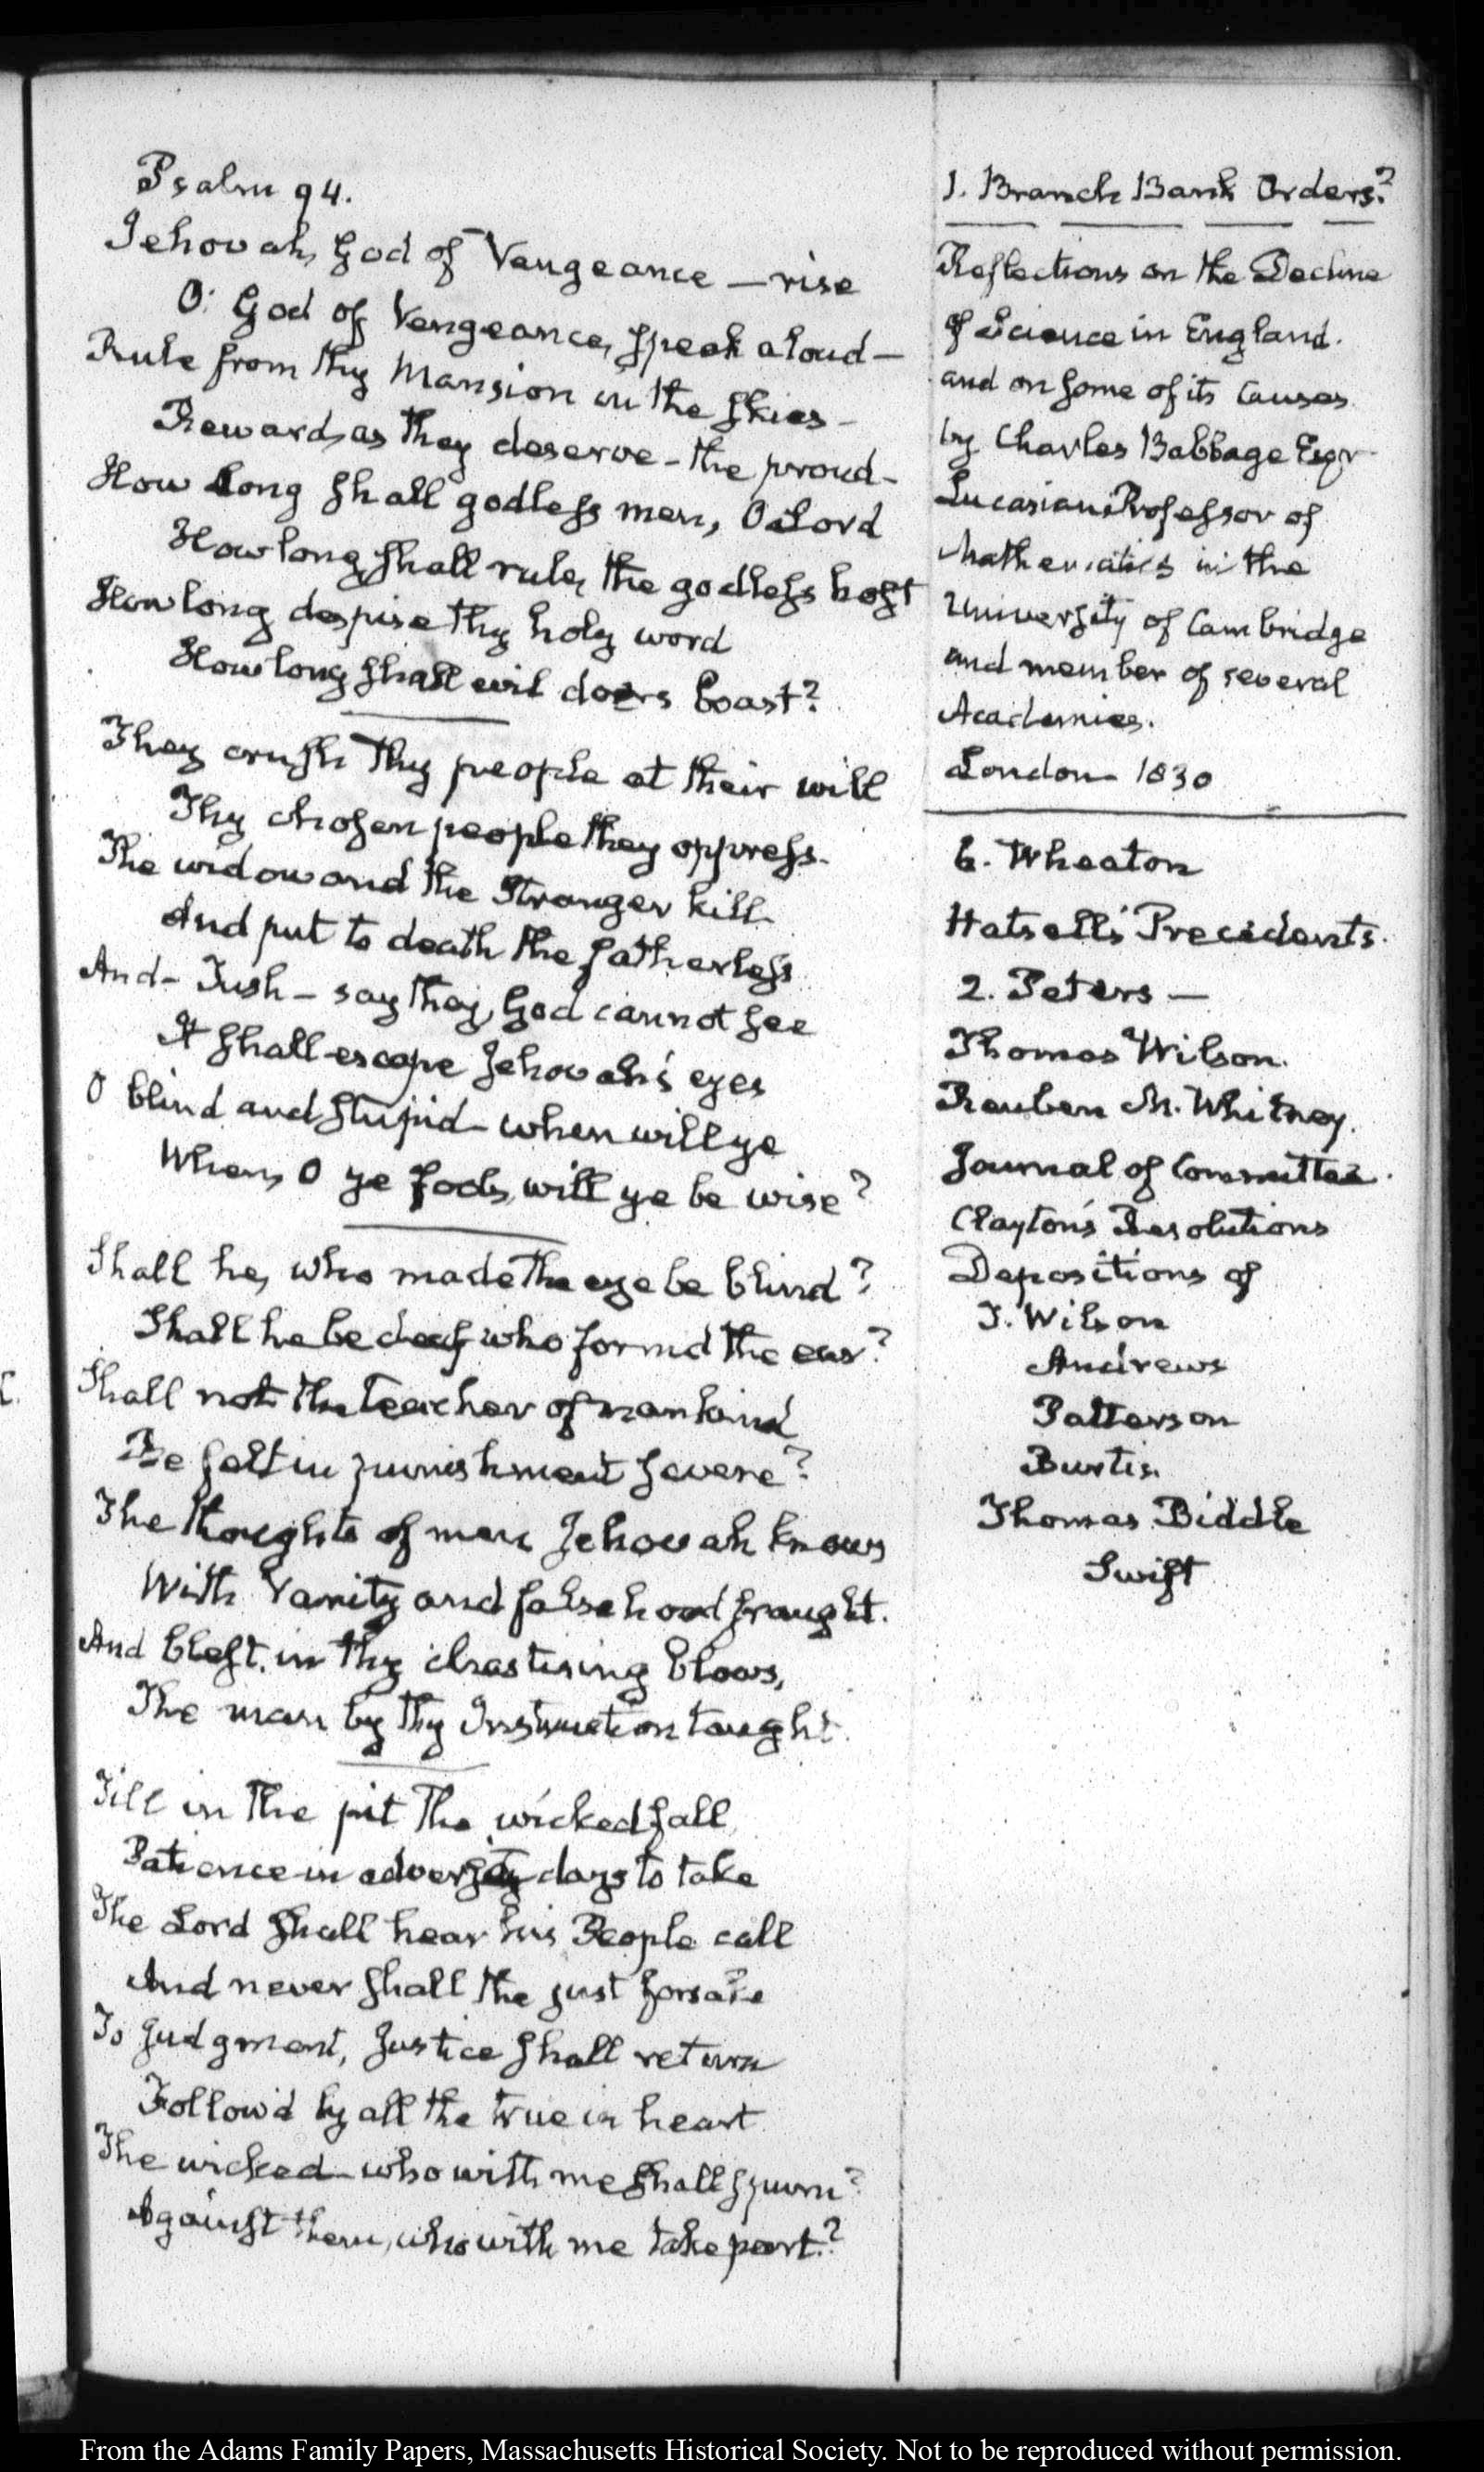 Psalm 94.
Jehovah, God of Vengeance — rise
O! God of Vengeance, speak aloud —
Rule from thy Mansion in the skies —
Reward, as they deserve - the proud -
How long shall godless men, O Lord
How long, shall rule, the godless host
How long despise thy holy word
How long shall evil doers boast?
They crush thy people at their will
Thy chosen people they oppress.
The widow and the Stranger kill
And put to death the fatherless
And - Tush - say they, God cannot see
It shall escape Jehovah's eyes
O blind and stupid - when will ye
When, O ye fools, will ye be wise?
Shall he, who made the eye be blind?
Shall he be deaf who form'd the ear?
Shall not the teacher of mankind
Be felt in punishment severe?
The thoughts of man Jehovah knows
With Vanity and falsehood fraught.
And blest, in thy chastising blows,
The man by thy Instruction taught.
Till in the pit the wicked fall
Patience in adversity days to take
The Lord shall hear his People call
And never shall the just forsake
To Judgment, Justice shall return
Follow'd by all the true in heart
The wicked - who with me shall spurn?
Against them, who with me take part?
1. Branch Bank Orders?
Reflections on the Decline
of Science in England.
and on some of its Causes
by Charles Babbage Esqr
Lucasian Professor of
Mathematics in the
University of Cambridge
and member of several
Academies.
London - 1830
6. Wheaton
Hatsell's Precedents.
2. Peters —
Thomas Wilson.
Reuben M. Whitney.
Journal of Committee.
Clayton's Resolutions
Depositions of
T. Wilson
Andrews
Patterson
Burtis.
Thomas Biddle
Swift
From the Adams Family Papers, Massachusetts Historical Society. Not to be reproduced without permission.